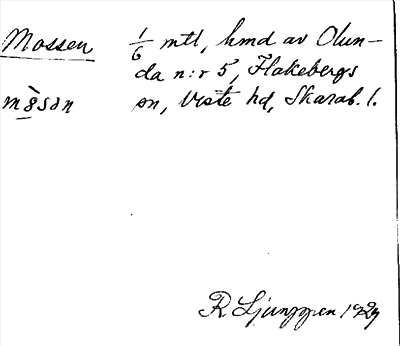 Mossen 1/6 mtl, hmd av Olun-
da n:r 5, Flakebergs
mòsən sn, Viste hd, Skarab. l.
R Ljunggren 1929